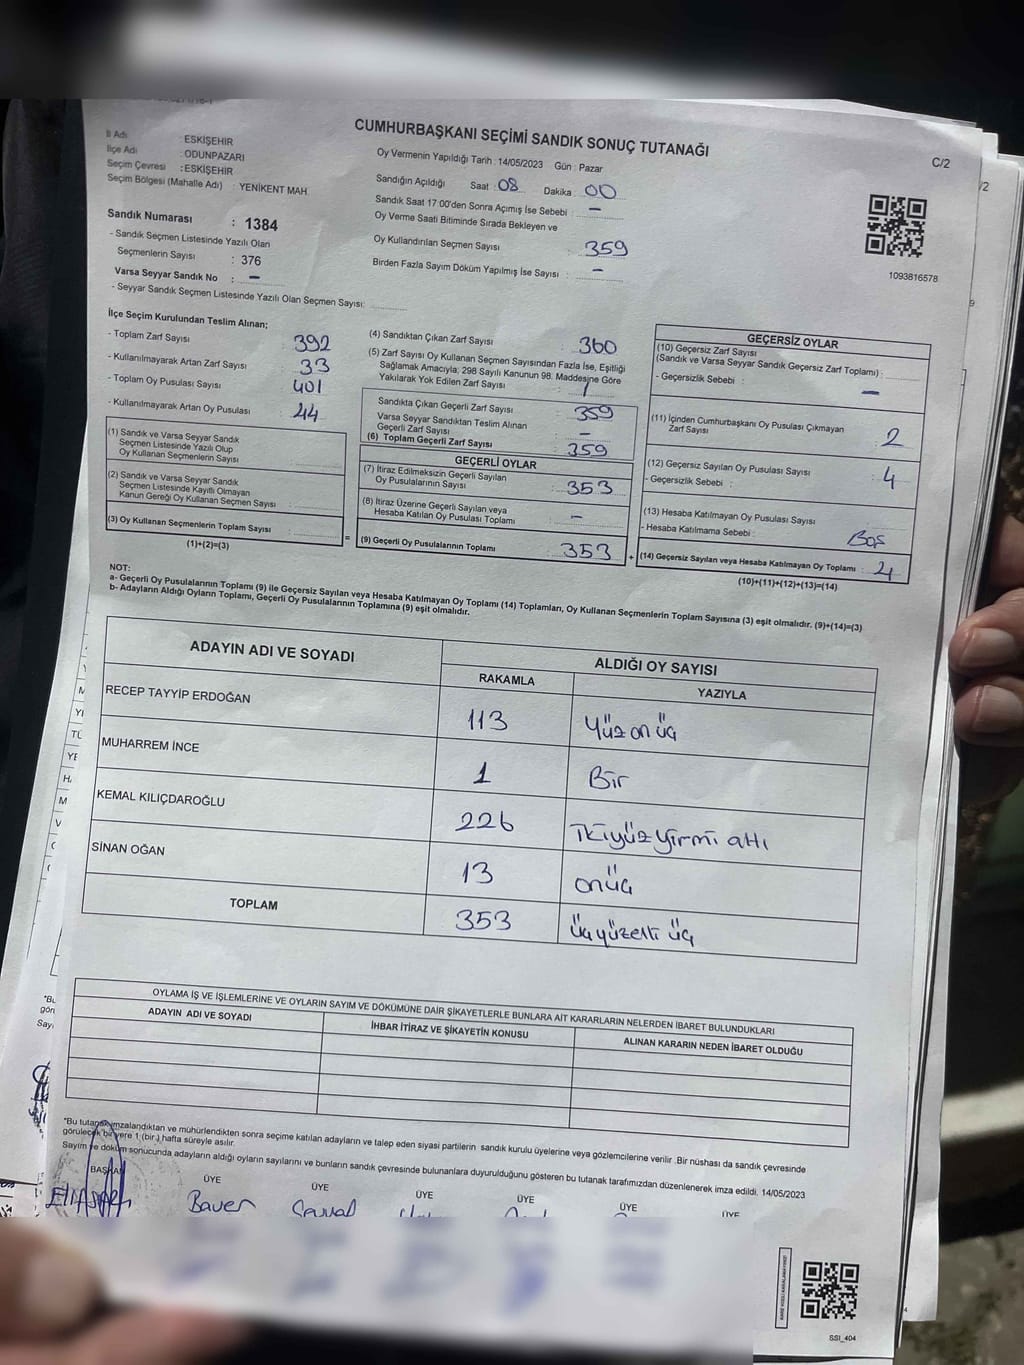 CUMHURBAŞKANI SEÇİMİ SANDIK SONUÇ TUTANAĞI
C/2
İl Adı : ESKİŞEHİR
İlçe Adı : ODUNPAZARI
Seçim Çevresi : ESKİŞEHİR
Seçim Bölgesi (Mahalle Adı) : YENİKENT MAH.
Sandık Numarası : 1384
- Sandık Seçmen Listesinde Yazılı Olan
Seçmenlerin Sayısı : 376
Varsa Seyyar Sandık No : –
- Seyyar Sandık Seçmen Listesinde Yazılı Olan Seçmen Sayısı:
Oy Vermenin Yapıldığı Tarih : 14/05/2023 Gün : Pazar
Sandığın Açıldığı Saat : 08 Dakika : 00
Sandık Saat 17:00'den Sonra Açımış İse Sebebi : –
Oy Verme Saati Bitiminde Sırada Bekleyen ve
Oy Kullandırılan Seçmen Sayısı : 359
Birden Fazla Sayım Döküm Yapılmış İse Sayısı : –
1093816578
İlçe Seçim Kurulundan Teslim Alınan;
- Toplam Zarf Sayısı : 392
- Kullanılmayarak Artan Zarf Sayısı : 33
- Toplam Oy Pusulası Sayısı : 401
- Kullanılmayarak Artan Oy Pusulası : 44
(1) Sandık ve Varsa Seyyar Sandık
Seçmen Listesinde Yazılı Olup
Oy Kullanan Seçmenlerin Sayısı :
(2) Sandık ve Varsa Seyyar Sandık
Seçmen Listesinde Kayıtlı Olmayan
Kanun Gereği Oy Kullanan Seçmen Sayısı :
(3) Oy Kullanan Seçmenlerin Toplam Sayısı :
(1)+(2)=(3)
=
(4) Sandıktan Çıkan Zarf Sayısı : 360
(5) Zarf Sayısı Oy Kullanan Seçmen Sayısından Fazla İse, Eşitliği
Sağlamak Amacıyla; 298 Sayılı Kanunun 98. Maddesine Göre
Yakılarak Yok Edilen Zarf Sayısı : 1
Sandıkta Çıkan Geçerli Zarf Sayısı : 359
Varsa Seyyar Sandıktan Teslim Alınan
Geçerli Zarf Sayısı : –
(6) Toplam Geçerli Zarf Sayısı : 359
GEÇERLİ OYLAR
(7) İtiraz Edilmeksizin Geçerli Sayılan
Oy Pusulalarının Sayısı : 353
(8) İtiraz Üzerine Geçerli Sayılan veya
Hesaba Katılan Oy Pusulası Toplamı : –
(9) Geçerli Oy Pusulalarının Toplamı : 353
+
GEÇERSİZ OYLAR
(10) Geçersiz Zarf Sayısı
(Sandık ve Varsa Seyyar Sandık Geçersiz Zarf Toplamı) :
- Geçersizlik Sebebi : –
(11) İçinden Cumhurbaşkanı Oy Pusulası Çıkmayan
Zarf Sayısı : 2
(12) Geçersiz Sayılan Oy Pusulası Sayısı : 4
- Geçersizlik Sebebi :
(13) Hesaba Katılmayan Oy Pusulası Sayısı
- Hesaba Katılmama Sebebi : Boş
(14) Geçersiz Sayılan veya Hesaba Katılmayan Oy Toplamı :
(10)+(11)+(12)+(13)=(14)
NOT:
a- Geçerli Oy Pusulalarının Toplamı (9) ile Geçersiz Sayılan veya Hesaba Katılmayan Oy Toplamı (14) Toplamları, Oy Kullanan Seçmenlerin Toplam Sayısına (3) eşit olmalıdır. (9)+(14)=(3)
b- Adayların Aldığı Oyların Toplamı, Geçerli Oy Pusulalarının Toplamına (9) eşit olmalıdır.
ADAYIN ADI VE SOYADI
ALDIĞI OY SAYISI
RAKAMLA YAZIYLA
RECEP TAYYİP ERDOĞAN 113 Yüz on üç
MUHARREM İNCE 1 Bir
KEMAL KILIÇDAROĞLU 226 İkiyüz yirmi altı
SİNAN OĞAN 13 onüç
TOPLAM 353 üçyüzelli üç
OYLAMA İŞ VE İŞLEMLERİNE VE OYLARIN SAYIM VE DÖKÜMÜNE DAİR ŞİKAYETLERLE BUNLARA AİT KARARLARIN NELERDEN İBARET BULUNDUKLARI
ADAYIN ADI VE SOYADI İHBAR İTİRAZ VE ŞİKAYETİN KONUSU ALINAN KARARIN NEDEN İBARET OLDUĞU
*Bu tutanak imzalandıktan ve mühürlendikten sonra seçime katılan adayların ve talep eden siyasi partilerin sandık kurulu üyelerine veya gözlemcilerine verilir .Bir nüshası da sandık çevresinde
görülecek bir yere 1 (bir ) hafta süreyle asılır.
Sayım ve döküm sonucunda adayların aldığı oyların sayılarını ve bunların sandık çevresinde bulunanlara duyurulduğunu gösteren bu tutanak tarafımızdan düzenlenerek imza edildi. 14/05/2023
BAŞKAN ÜYE ÜYE ÜYE ÜYE ÜYE ÜYE
SSI_404